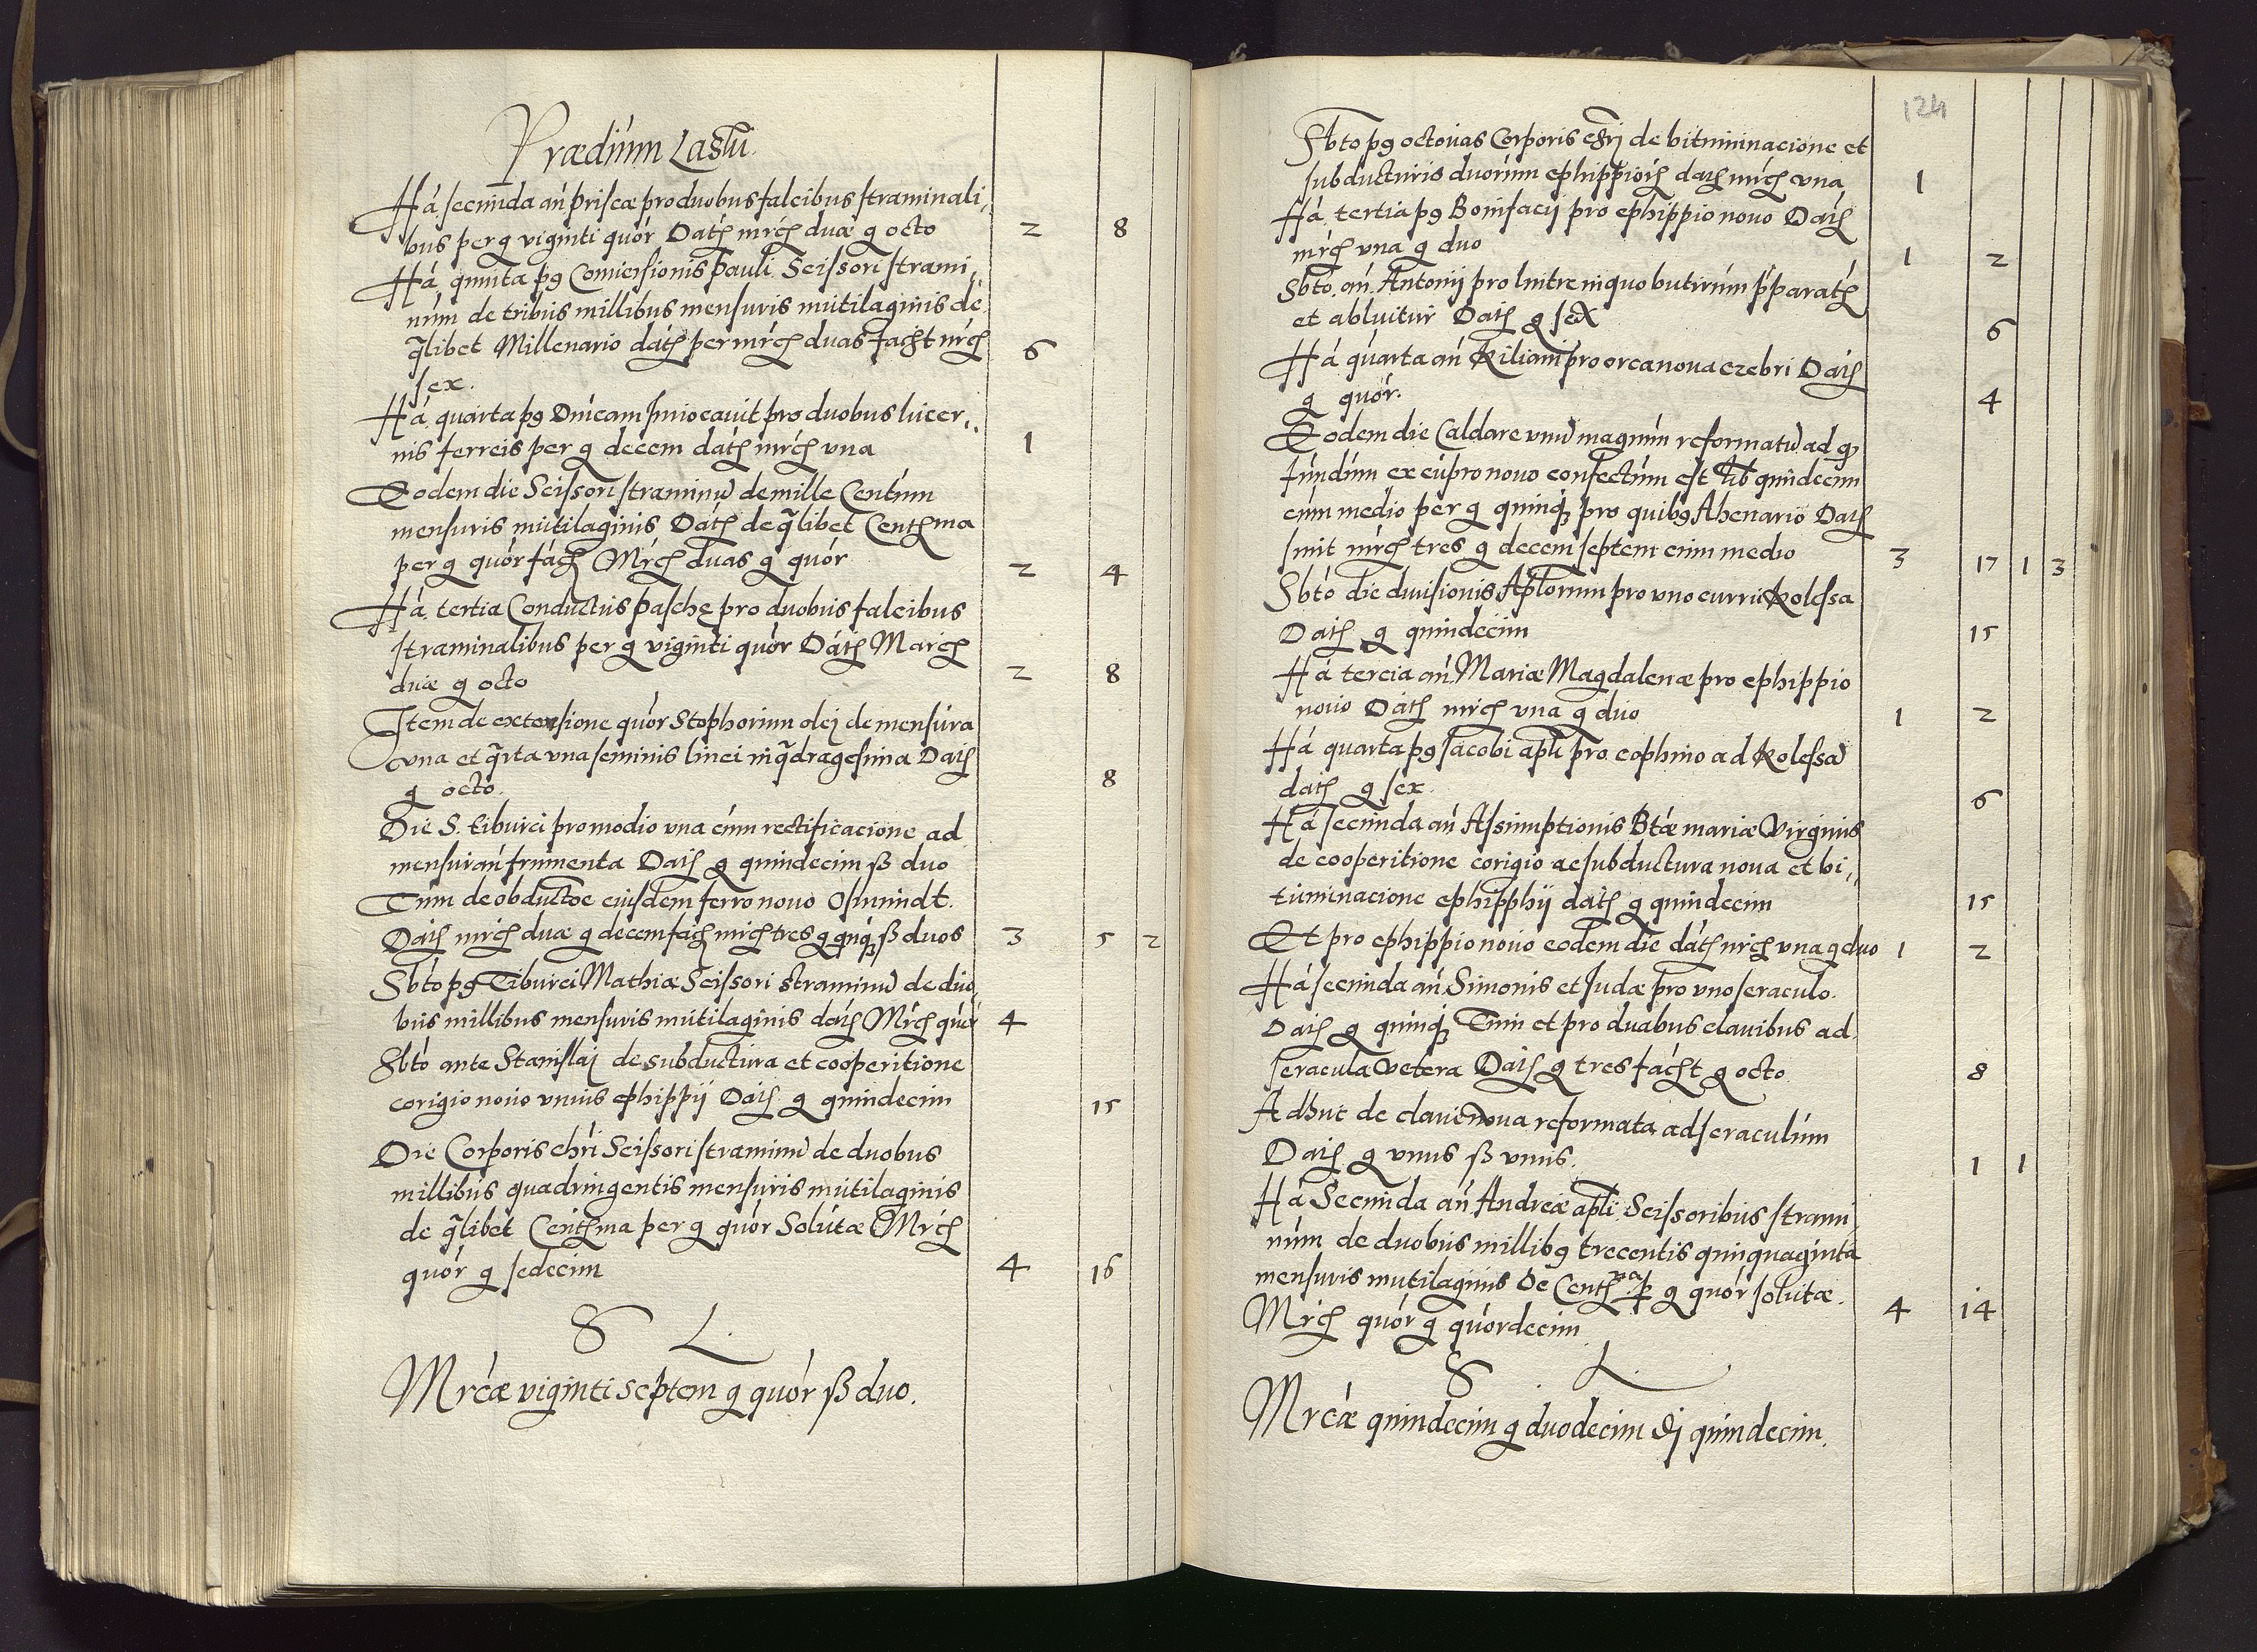 Prædium Lasky
Ha secunda añ priscæ pro duobus falcibus straminali
bus per g viginti quór Datę mrcę duæ g octo
2 8
Ha quinta pg Conversionis pauli Scissori strami
num de tribus millibus mensuris mutilaginis de
qlibet Millenario datę per mrcę duas facit mrcę
sex.
6
Ha quarta pg Dnicam Invocavit pro duobus lucer
nis ferreis per g decem datę mrcę una
1
Eodem die Scissori straminu de mille Centum
mensuris mutilaginis Datę de qlibet Centęma
per g quór fac Mrcę duas g quór
2 4
Ha tertia Conductus pasche pro duobus falcibus
straminalibus per g viginti quór Datę Marcę
duæ g octo
2 8
Item de extensione quór Stophorum olej de mensura
una et qrta una seminis linei in qdragesima Datę
g octo.
8
Die S. Tiburci pro modio una cum rectificacione ad
mensurañ frumenta Datę g quindecim ß duo
Tum de obductoe eiusdem ferro novo Osmundt.
Datę mrcę duæ g decem fac mrcę tres g qnqȝ ß duos
3 5 2
Sbto pg Tiburci Mathiæ Scissori straminu de duo
bus millibus mensuris mutilaginis datę Mrcę quór
4
Sbto ante Stanislaj de subductura et cooperitione
corigio novo unius ephippij Datę g quindecim
15
Die Corporis chri Scissori straminu de duobus
millibus quadringentis mensuris mutilaginis
de qlibet Centęma per g quór Solutæ Mrcę
quór g sedecim
4 16
S L.
Mrcæ viginti septem g quór ß duo.
124
Sbto pg octavas Corporis chri de bituminacione et
subducturis duorum ephippiorę datę mrcę una
1
Ha tertia pg Bonifacij pro ephippio novo Datę
mrcę una g duo
1 2
Sbto añ Antonij pro lintre in quo butirum pparatę
et abluitur Datę g sex
6
Ha quarta añ Kiliani pro orca nova czebri Datę
g quór.
4
Eodem die Caldare unu magnum reformatu ad qȝ
fundum ex cupro novo confectum est lib quindecim
cum medio per g quinqȝ pro quibg Ahenario Datę
sunt mrcę tres g decem septem cum medio
3 17 1 3
Sbto die divisionis Aplorum pro uno curru Kolessa
Datę g quindecim
15
Ha tercia añ Mariæ Magdalenæ pro ephippio
novo Datę mrcę una g duo
1 2
Ha quarta pg Jacobi apli pro cophino ad Kolessa
datę g sex.
6
Ha secunda añ Assumptionis Btæ mariæ Virginis
de cooperitione corigio ac subductura nova et bi
tuminacione ephipphij datę g quindecim
15
Et pro ephippio novo eodem die datę mrcę una g duo
1 2
Ha secunda añ Simonis et Judæ pro uno seraculo.
Datę g quinqȝ Tum et pro duabus clavibus ad
seracula vetera Datę g tres facit g octo
8
Adhuc de clave nova reformata ad seraculum
Datę g unus ß unus.
1 1
Ha Secunda añ Andreæ apli Scissoribus strami
num de duobus millibg trecentis quinquaginta
mensuris mutilaginis De Centęma p g quór solutæ.
Mrcę quór g quórdecim
4 14
S L.
Mrcæ quindecim g duodecim dj quindecim.